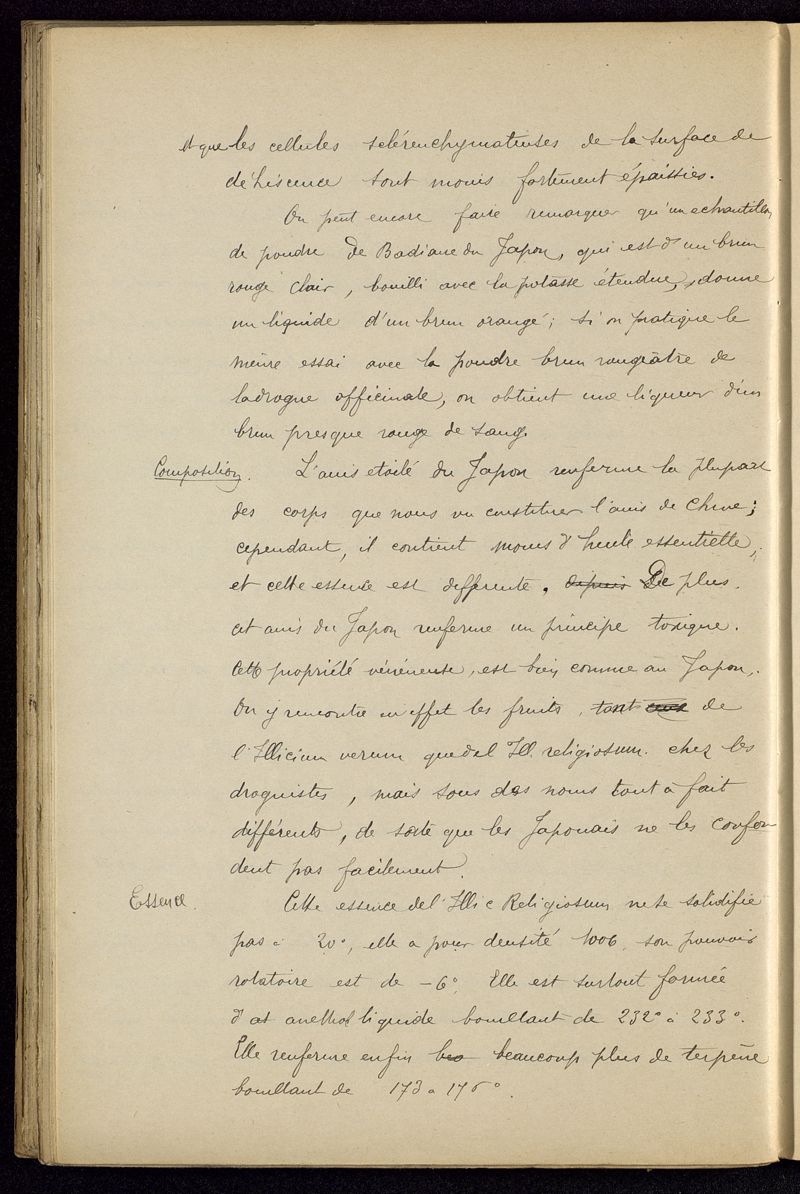 et que les cellules sclérenchymateuses de la surface de
déhiscence sont moins fortement épaissies.
On peut encore faire remarquer qu'un echantillon
de poudre de Badiane du Japon, qui est d'un brun
rouge clair, bouilli avec la potasse étendue, donne
un liquide d'un brun orangé; si on pratique le
même essai avec la poudre brun rougeâtre de
la drogue officinale, on obtient une liqueur d'un
brun presque rouge de sang.
Composition. L'anis etoilé du Japon renferme la plupart
des corps que nous vu constituer l'anis de Chine;
cependant, il contient moins d'huile essentielle,
et cette essence est differente. depuis De plus.
cet anis du Japon renferme un principe toxique.
Cette propriété vénéneuse, est bien connue au Japon,.
On y rencontre en effet les fruits, tant de
l'Illicium verum que de l'Ill. religiosum. chez les
droguistes, mais sous des noms tout à fait
différents, de sorte que les Japonais ne les confon
dent pas facilement.
Essence. Cette essence de l'Illic Religiosum ne se solidifie
pas à 20°, elle a pour densité 1006, son pouvoir
rotatoire est de -6°. Elle est surtout formée
d'at anethol liquide bouillant de 232° à 233°.
Elle renferme enfin beaucoup plus de terpène
bouillant de 173 a 176°.